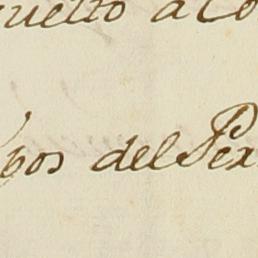 vuelto a Co
pos del Pex